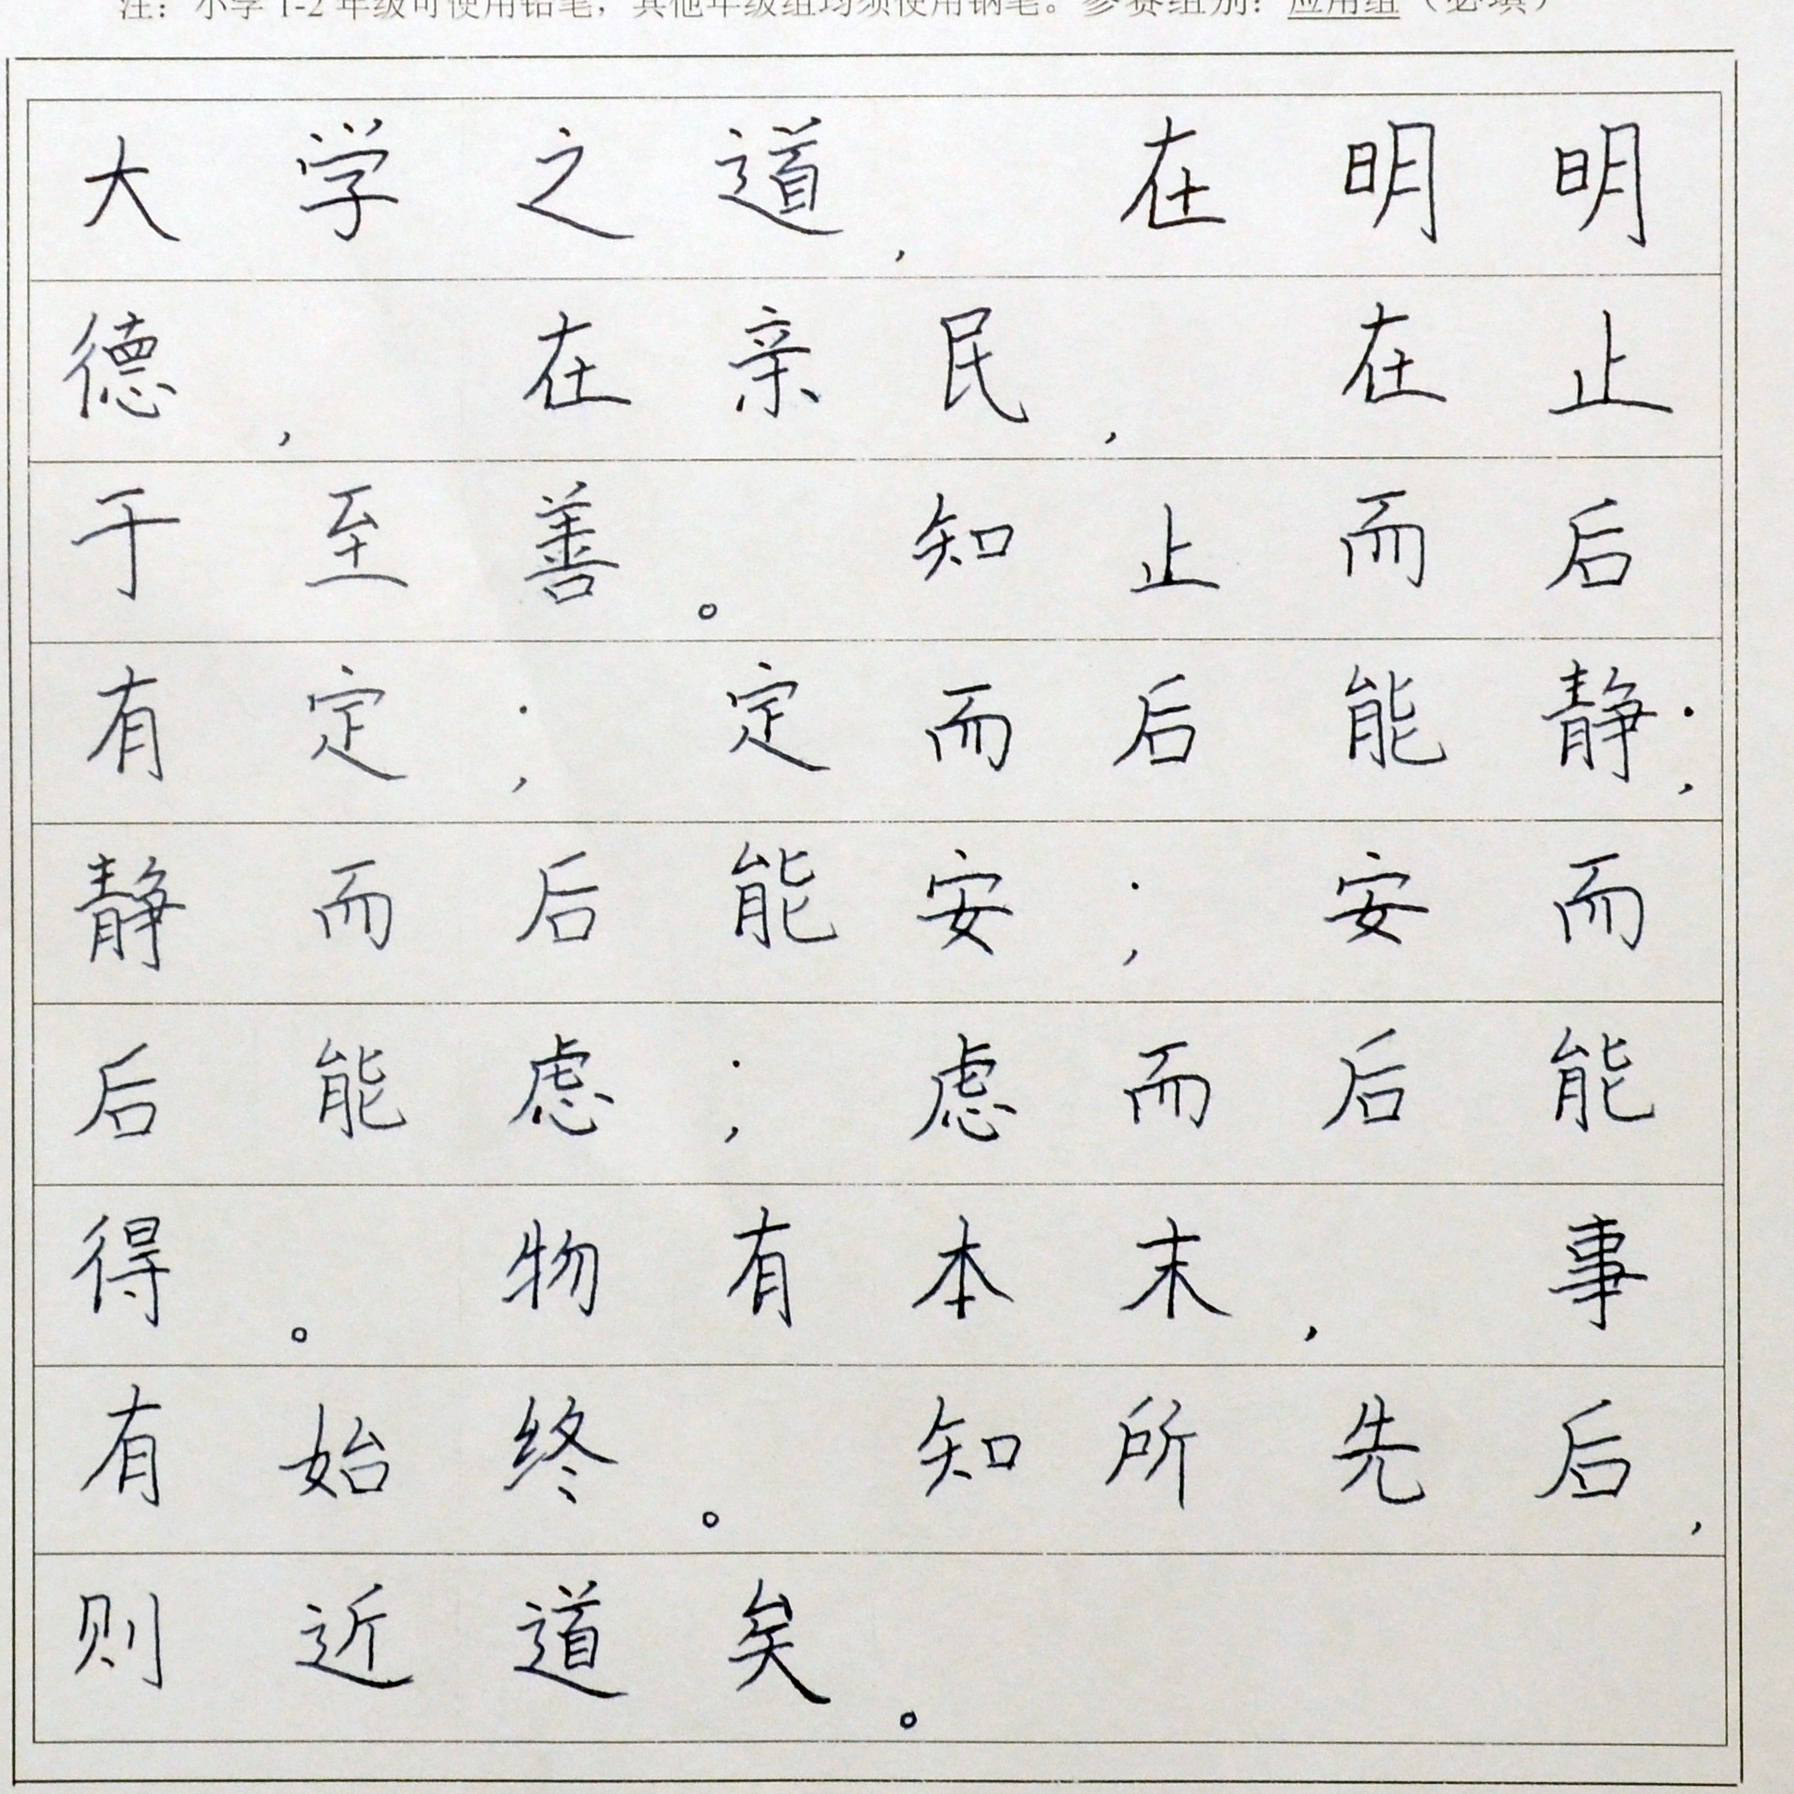 注：小学1-2年级可使用铅笔，其他年级组均须使用钢笔。参赛组别：应用组（必填）
大学之道，在明明
德，在亲民，在止
于至善。知止而后
有定；定而后能静；
静而后能安；安而
后能虑；虑而后能
得。物有本末，事
有始终。知所先后，
则近道矣。